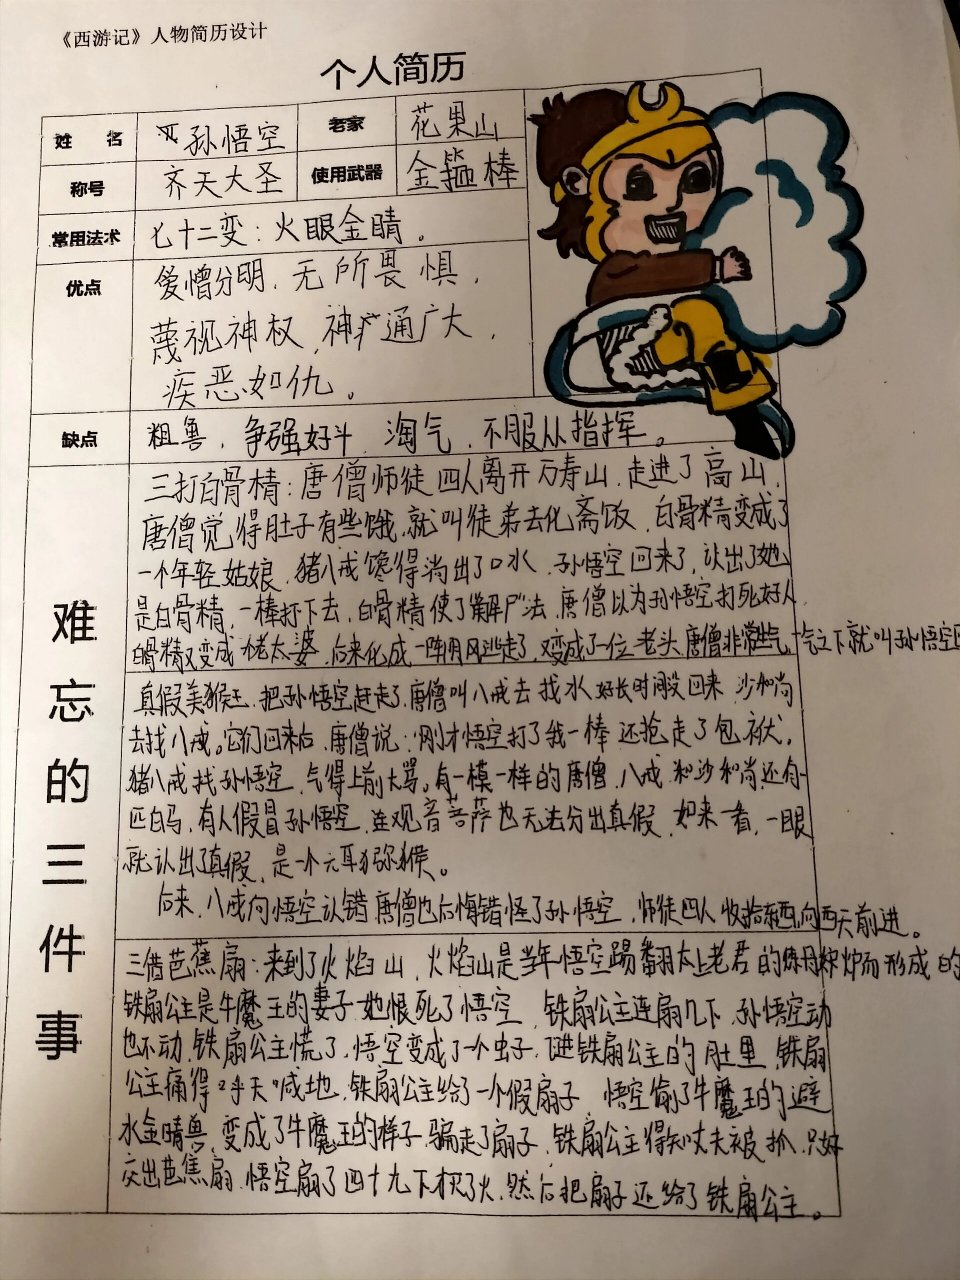 《西游记》人物简历设计
个人简历
姓 名 孙悟空 老家 花果山
称号 齐天大圣 使用武器 金箍棒
常用法术 七十二变:火眼金睛。
优点 爱憎分明,无所畏惧,
蔑视神权,神通广大,
疾恶如仇。
缺点 粗鲁,争强好斗,淘气,不服从指挥。
难忘的三件事
三打白骨精:唐僧师徒四人离开万寿山,走进了高山,
唐僧觉得肚子有些饿,就叫徒弟去化斋饭,白骨精变成了
一个年轻姑娘,猪八戒馋得淌出了口水,孙悟空回来了,认出了她
是白骨精,一棒打下去,白骨精使了解尸法,唐僧以为孙悟空打死好人
白骨精又变成老太婆,后来化成一阵阴风逃走了,又变成了一位老头,唐僧非常生气,一气之下就叫孙悟空回
真假美猴王,把孙悟空赶走了,唐僧叫八戒去找水,好长时间没回来,沙和尚
去找八戒。它们回来后,唐僧说:刚才悟空打了我一棒,还抢走了包袱,
猪八戒找孙悟空,气得上前大骂。有一模一样的唐僧,八戒和沙和尚,还有一
匹白马,有人假冒孙悟空,连观音菩萨也无法分出真假,如来一看,一眼
就认出了真假,是一个六耳猕猴。
后来,八戒向悟空认错,唐僧也后悔错怪了孙悟空,师徒四人收拾东西,向西天前进。
三借芭蕉扇:来到了火焰山,火焰山是当年悟空踢翻太上老君的炼丹炉而形成的
铁扇公主是牛魔王的妻子,她恨死了悟空,铁扇公主连扇几下,孙悟空动
也不动,铁扇公主慌了,悟空变成了一个虫子,进铁扇公主的肚里,铁扇
公主痛得呼天喊地,铁扇公主给了一个假扇子,悟空偷了牛魔王的避
水金晴兽,变成了牛魔王的样子,骗走了扇子,铁扇公主得知丈夫被抓,只好
交出芭蕉扇,悟空扇了四十九下才灭了火,然后把扇子还给了铁扇公主。